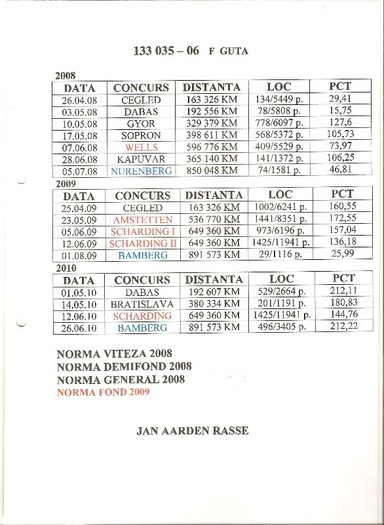 133 035 – 06 F GUTA
2008
DATA CONCURS DISTANTA LOC PCT
26.04.08 CEGLED 163 326 KM 134/5449 p. 29,41
03.05.08 DABAS 192 556 KM 78/5808 p. 15,75
10.05.08 GYOR 329 379 KM 778/6097 p. 127,6
17.05.08 SOPRON 398 611 KM 568/5372 p. 105,73
07.06.08 WELLS 596 776 KM 409/5529 p. 73,97
28.06.08 KAPUVAR 365 140 KM 141/1372 p. 106,25
05.07.08 NURENBERG 850 048 KM 74/1581 p. 46,81
2009
DATA CONCURS DISTANTA LOC PCT
25.04.09 CEGLED 163 326 KM 1002/6241 p. 160,55
23.05.09 AMSTETTEN 536 770 KM 1441/8351 p. 172,55
05.06.09 SCHARDING I 649 360 KM 973/6196 p. 157,04
12.06.09 SCHARDING II 649 360 KM 1425/11941 p. 136,18
01.08.09 BAMBERG 891 573 KM 29/1116 p. 25,99
2010
DATA CONCURS DISTANTA LOC PCT
01.05.10 DABAS 192 607 KM 529/2664 p. 212,11
14.05.10 BRATISLAVA 380 334 KM 201/1191 p. 180,83
12.06.10 SCHARDING 649 360 KM 1425/11941 p. 144,76
26.06.10 BAMBERG 891 573 KM 496/3405 p. 212,22
NORMA VITEZA 2008
NORMA DEMIFOND 2008
NORMA GENERAL 2008
NORMA FOND 2009
JAN AARDEN RASSE